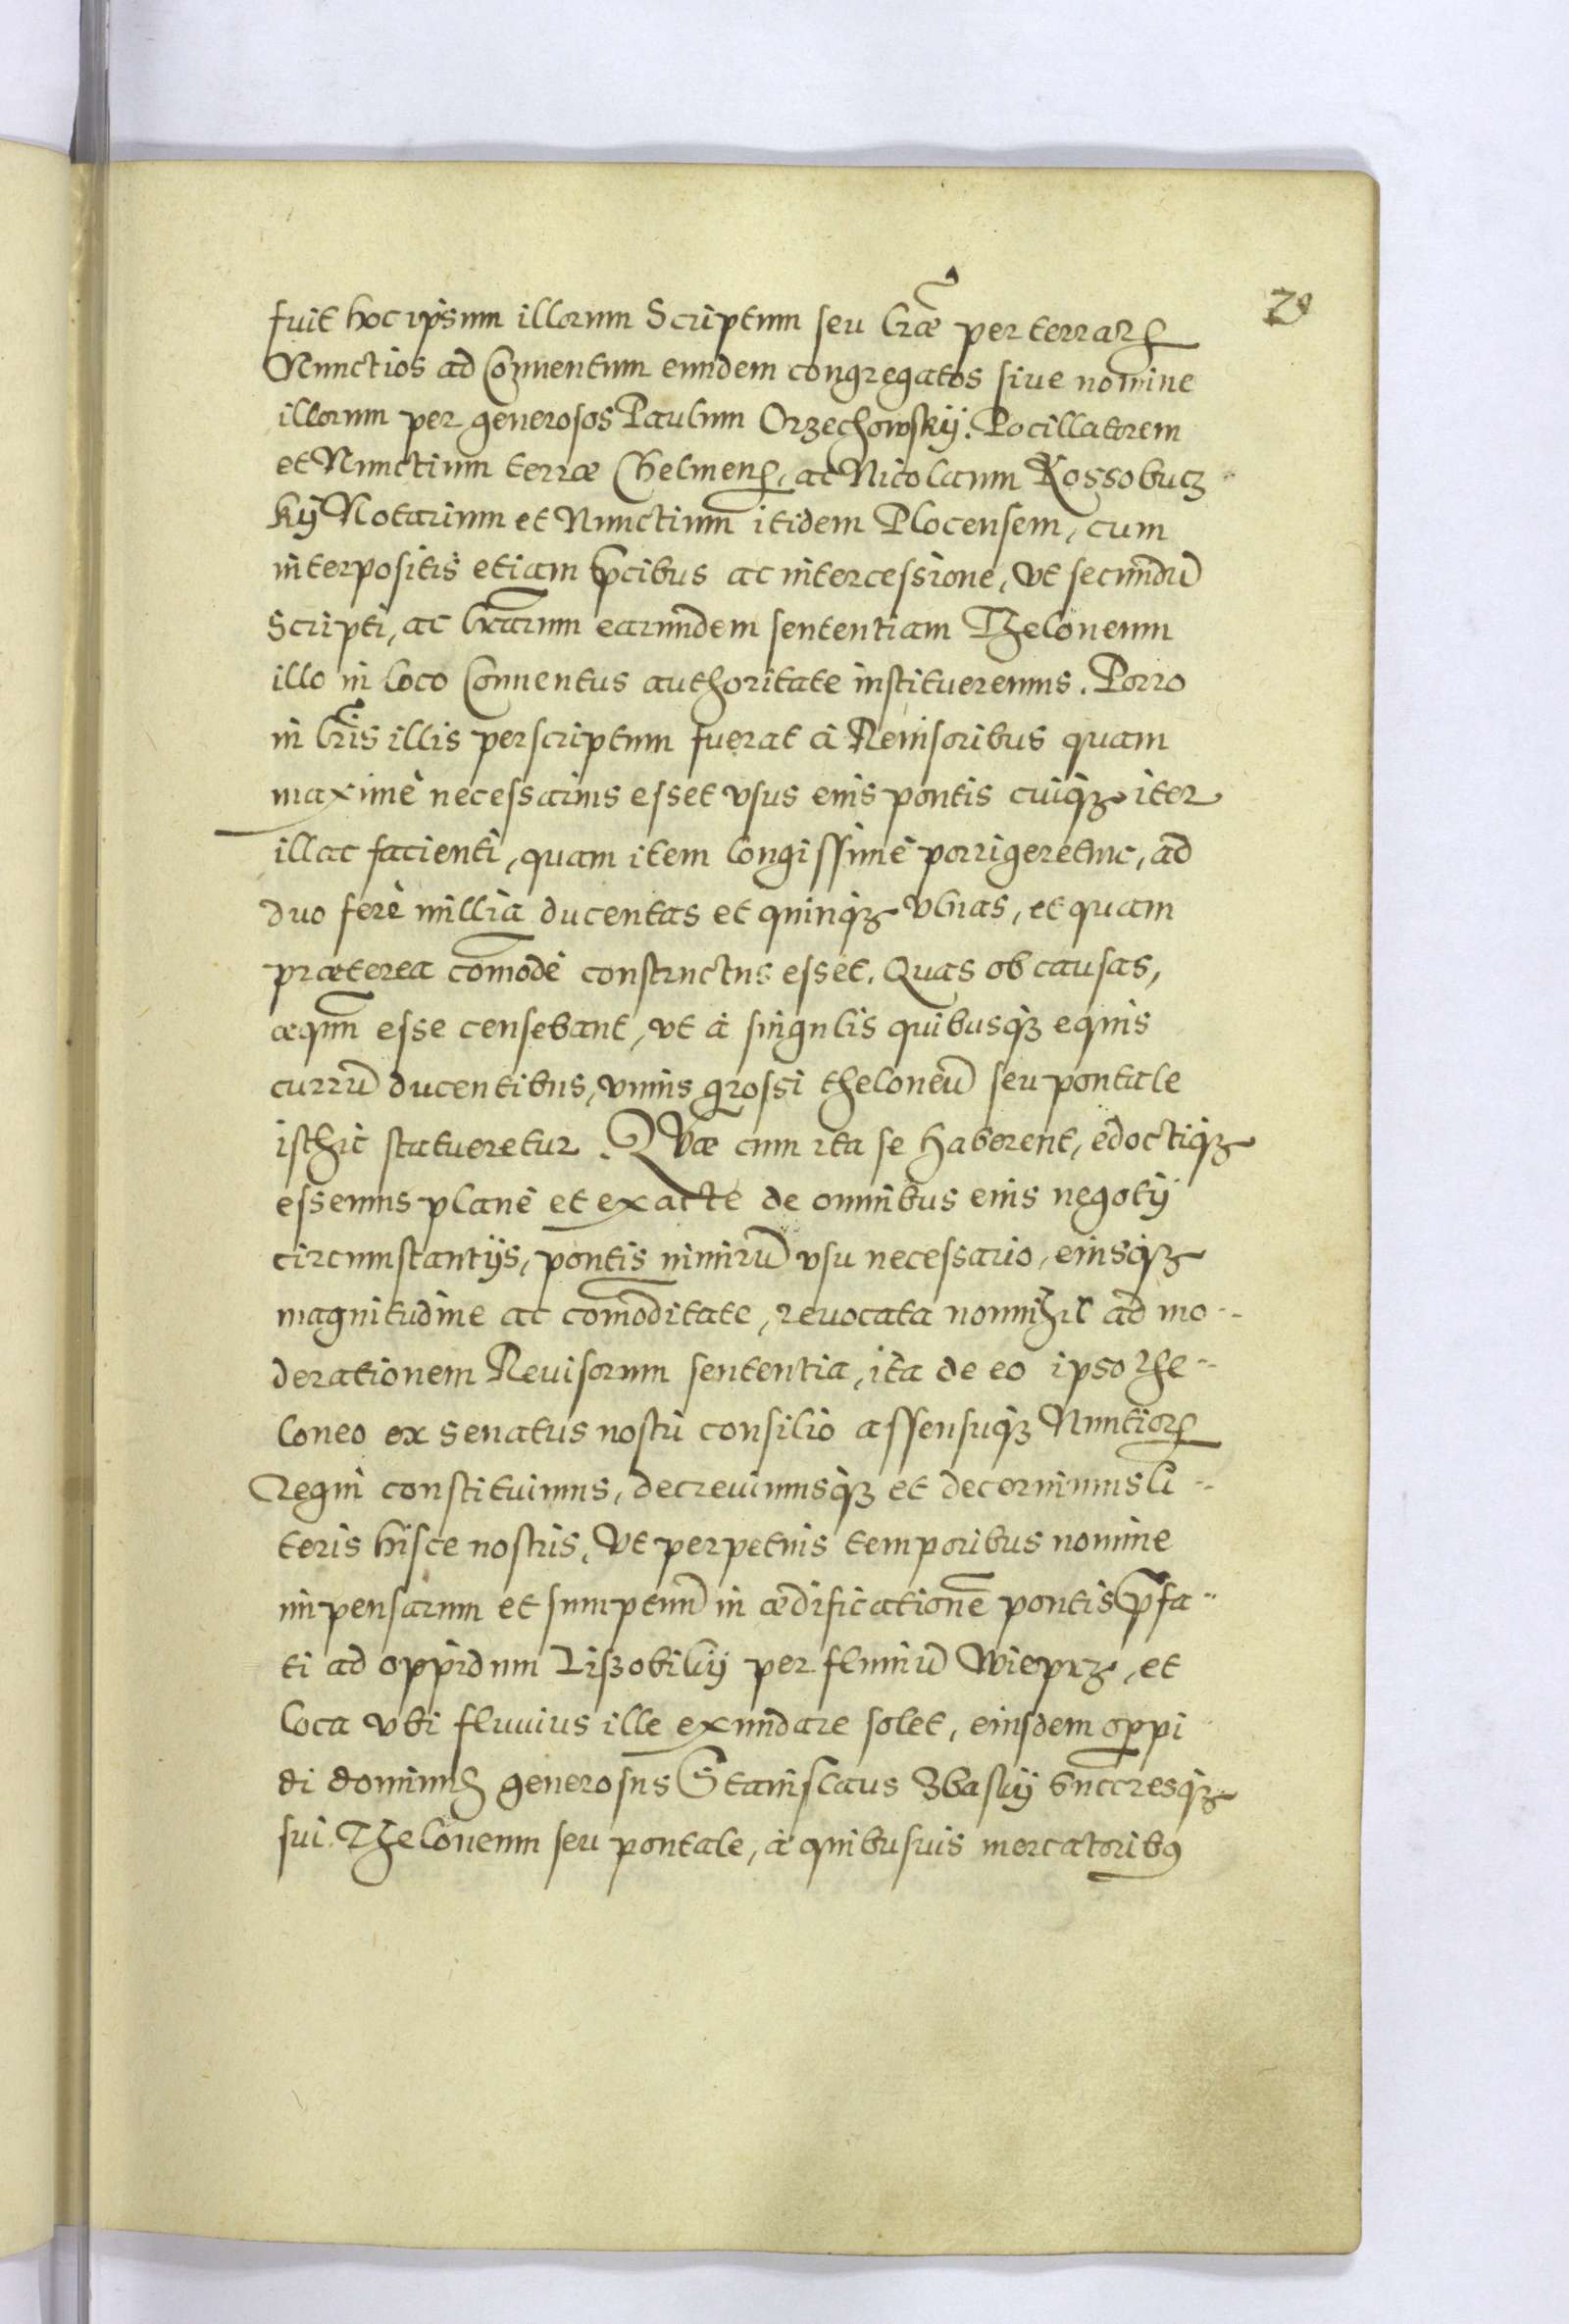 29
fuit hoc ipsum illorum Scriptum seu lr̃æ per terrarꝝ
Nunctios ad Conuentum eundem congregatos siue nomine
illorum per generosos Paulum Orzechowskij. Pocillatorem
et Nunctium terræ Chelmenꝭ, ac Nicolaum Kossobucz-
kij Notarium et Nunctium itidem Plocensem, cum
interpositis etiam p̃cibus ac intercessione, vt secundũ
Scripti, ac lr̃arum earundem sententiam Theloneum
illo in loco Conuentus authoritate institueremus. Porro
in lr̃is illis perscriptum fuerat à Reuisoribus quam
maximè necessarius esset vsus eius pontis cuiqꝫ iter
illac facienti, quam item longissimè porrigeretur, ad
duo ferè millia ducentas et quinqꝫ vlnas, et quam
præterea com̃odè constructus esset. Quas ob causas,
æqum̃ esse censebant, vt à singulis quibusqꝫ equis
currũ ducentibus, vnius grossi theloneũ seu pontale
isthic statueretur. Quæ cum ita se haberent, edoctiqꝫ
essemus planè et exactè de omnibus eius negotij
circumstantijs, pontis nimirũ vsu necessario, eiusqꝫ
magnitudine ac com̃oditate, reuocata nonnihil ad mo-
derationem Reuisorum sententia, ita de eo ipso The-
loneo ex senatus nostri consilio assensuqꝫ Nuntiorꝝ
Regni constituimus, decreuimusqꝫ et decernimus li-
teris hisce nostris, Vt perpetuis temporibus nomine
impensarum et sumptuũ in ædificationẽ pontis p̃fa-
ti ad oppidum Liszobikij per fluuiũ Wieprz, et
loca vbi fluuius ille exundare solet, eiusdem oppi
di dominus generosus Stanislaus Zbaskij succresqꝫ
sui. Theloneum seu pontale, à quibusuis mercatoribꝰ